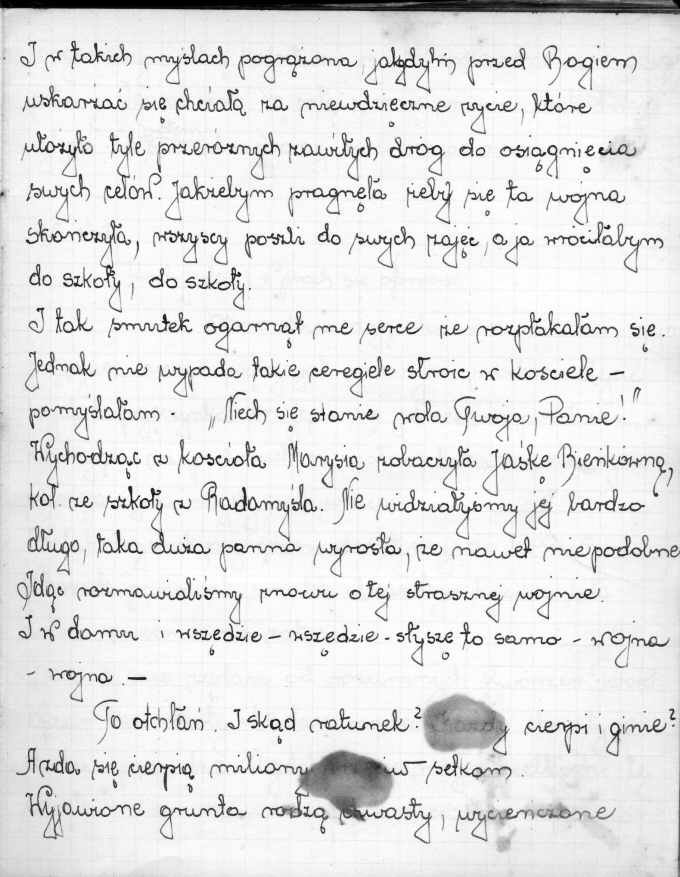 I w takich myślach pogrążona, jakgdybɨm przed Bogiem
uskarżać się chciałą za niewdzięczne życie, które
ułożyło tyle przeróżnych zawiłych dróg do osiągnięcia
swych celów. Jakżebym pragnęła żeby się ta wojna
skończyła, wszyscy poszli do swych zajęć, a ja wróciłabym
do szkoły, do szkoły.
I tak smutek ogarnął me serce że rozpłakałam się.
Jednak nie wypada takie ceregiele stroic w kościele –
pomyślałam - „Niech się stanie wola Twoja, Panie!”
Wychodząc z kościoła Marysia zobaczyła Jaśkę Bieńkównę,
kol. ze szkoły z Radomyśla. Nie widziałyśmy jej bardzo
długo, taka duża panna wyrosła, że nawet niepodobne
Idąc rozmawialiśmy znowu o tej strasznej wojnie.
I w domu i wszędzie – wszędzie - słyszę to samo - wojna
- wojna. –
To otchłań. I skąd ratunek? Każdy cierpi i ginie?
Azda się cierpią miliony setkom.
Wyjawione grunta rodzą chwasty, wycieńczone